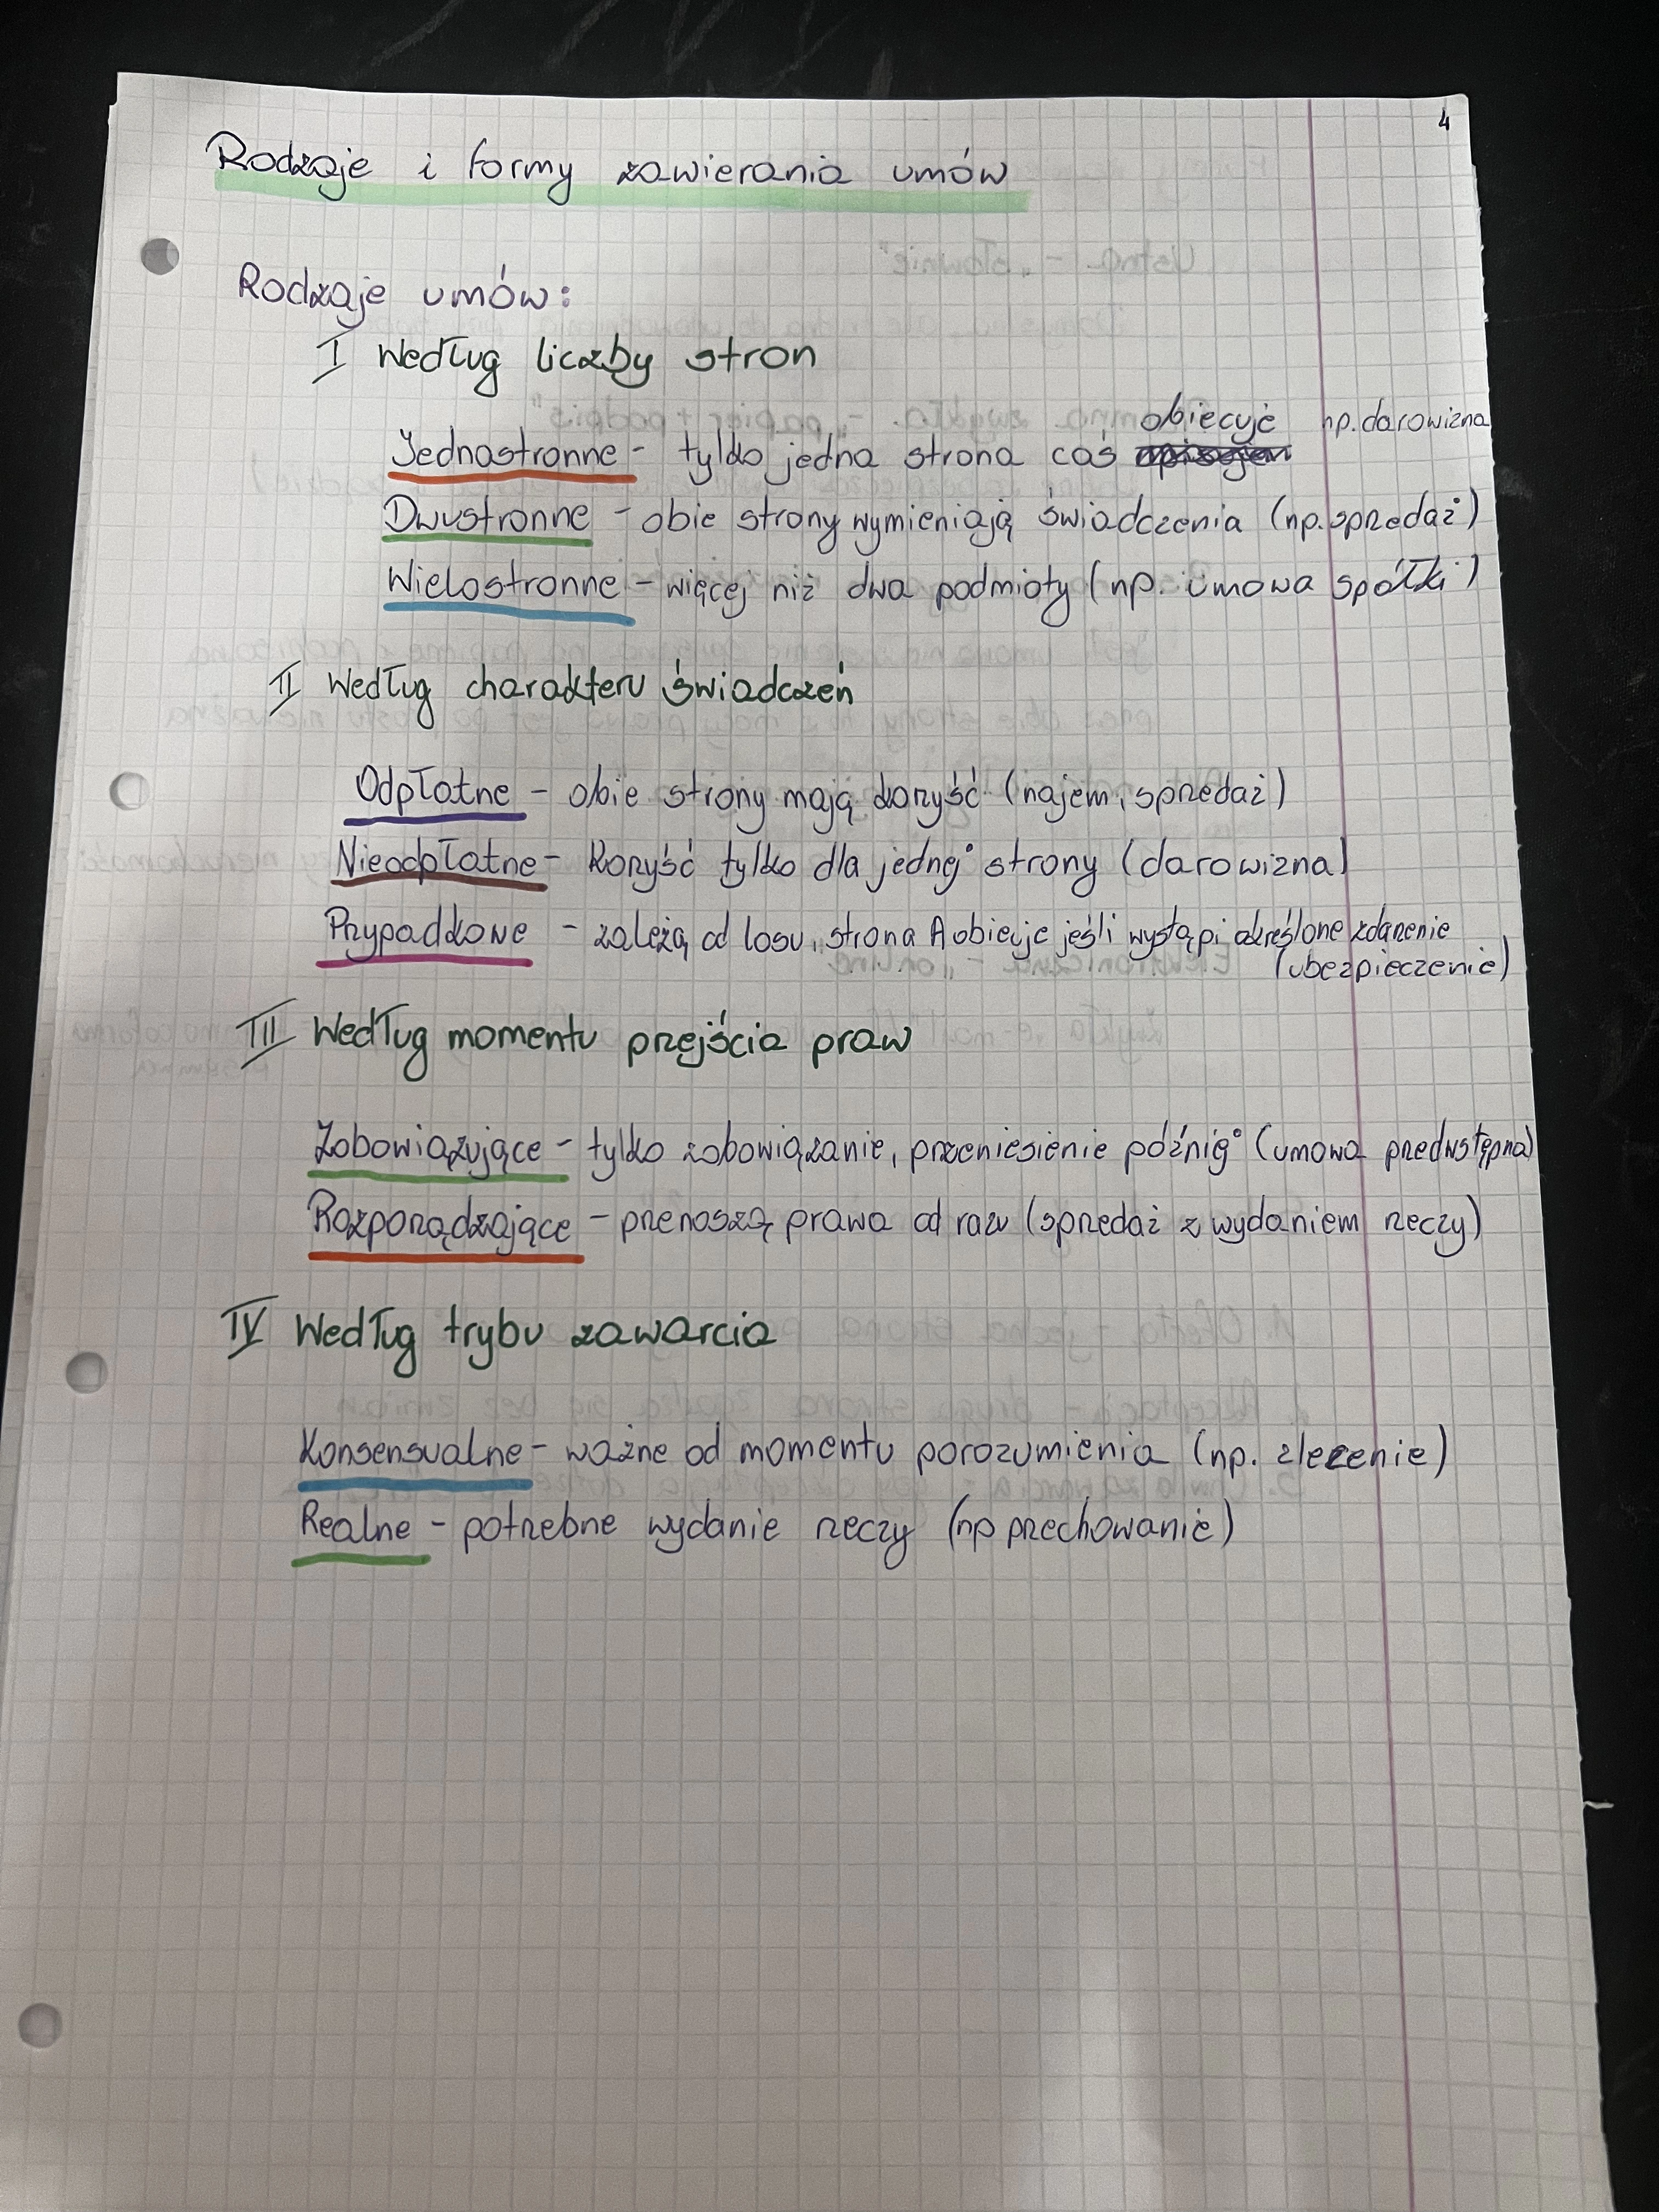 4
Rodzaje i formy zawierania umów
Rodzaje umów:
I Według liczby stron
obiecuje np. darowizna
Jednostronne - tylko jedna strona coś
Dwustronne - obie strony wymieniają świadczenia (np. sprzedaż)
Wielostronne - więcej niż dwa podmioty (np. umowa spółki)
II Według charakteru świadczeń
Odpłatne - obie strony mają korzyść (najem, sprzedaż)
Nieodpłatne - Korzyść tylko dla jednej strony (darowizna)
Przypadkowe - zależą od losu, strona A obiecuje jeśli wystąpi określone zdarzenie
(ubezpieczenie)
III Według momentu przejścia praw
Zobowiązujące - tylko zobowiązanie, przeniesienie później (umowa przedwstępna)
Rozporządzające - przenoszą prawa od razu (sprzedaż z wydaniem rzeczy)
IV Według trybu zawarcia
Konsensualne - ważne od momentu porozumienia (np. zlecenie)
Realne - potrzebne wydanie rzeczy (np przechowanie)